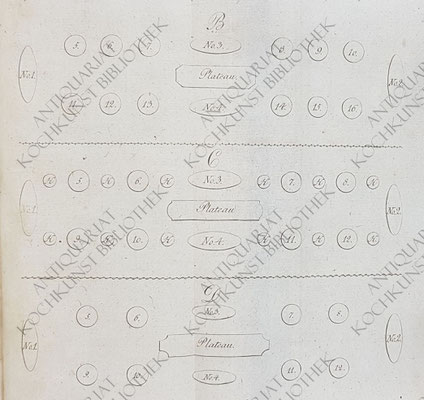 B
5. 6. 7. No 3. 8. 9. 10.
No 1. Plateau. No 2.
11. 12. 13. No 4. 14. 15. 16.
C
K 5. K 6. K No 3. K 7. K 8. K
No 1. Plateau No 2.
K 9. K 10. K No 4. K 11. K 12. K
D
5. 6. No 3. 7. 8.
No 1. Plateau. No 2.
9. 10. No 4. 11. 12.
ANTIQUARIAT
KOCHKUNST BIBLIOTHEK
ANTIQUARIAT
KOCHKUNST BIBLIOTHEK
ANTIQUARIAT
KOCHKUNST BIBLIOTHEK
ANTIQUARIAT
KOCHKUNST BIBLIOTHEK
ANTIQUARIAT
KOCHKUNST BIBLIOTHEK
ANTIQUARIAT
KOCHKUNST BIBLIOTHEK